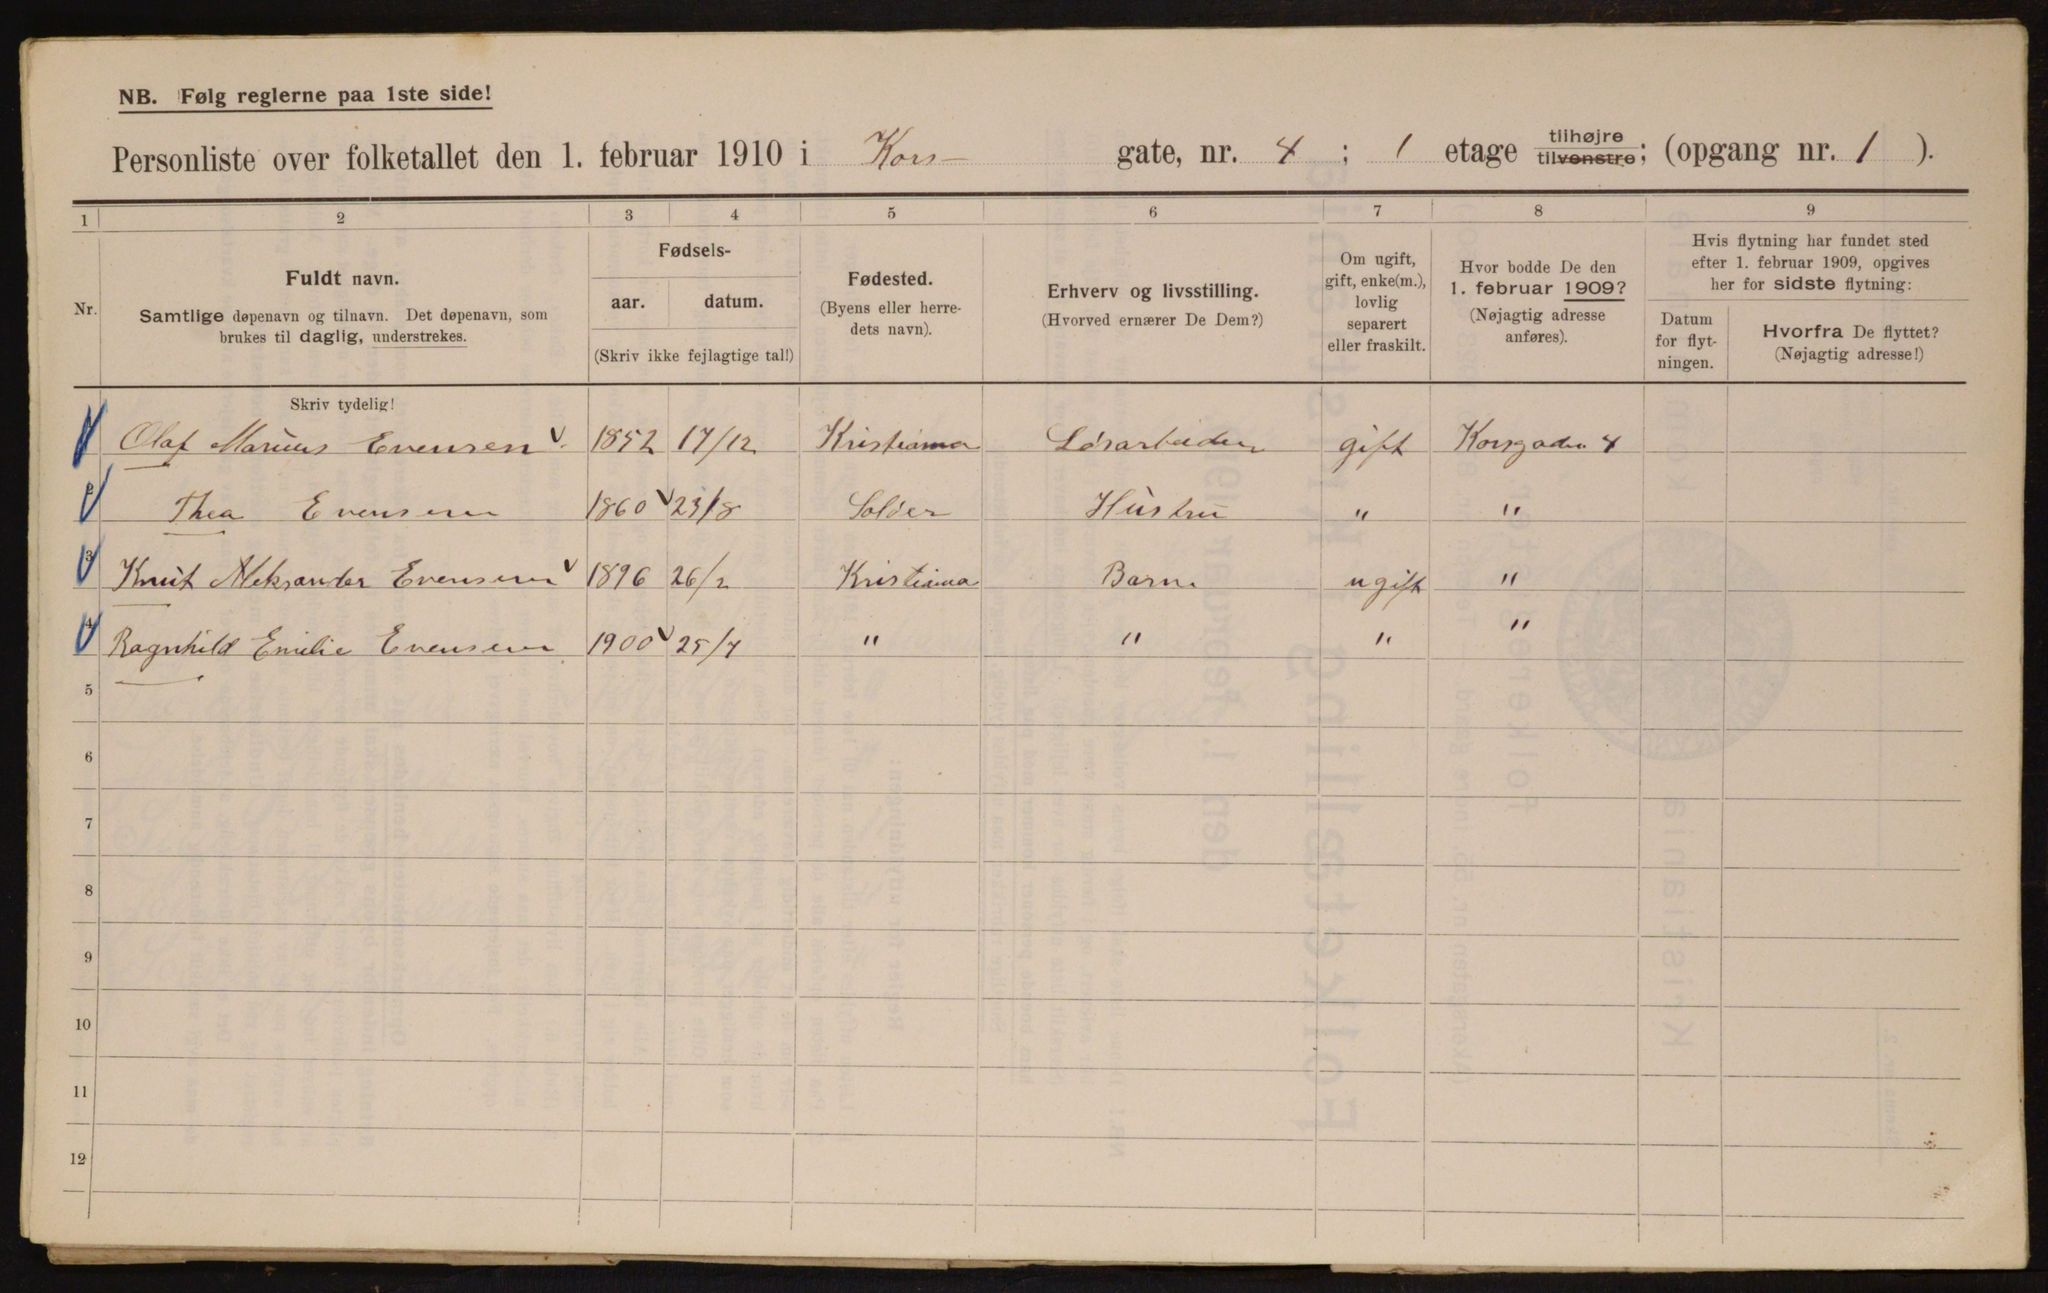 NB. Følg reglerne paa 1ste side!
Personliste over folketallet den 1. februar 1910 i Kors- gate, nr. 4 ; 1 etage tilhøjre tilvenstre; (opgang nr. 1 ).
1 2 3 4 5 6 7 8 9
Nr.
Fuldt navn.
Samtlige døpenavn og tilnavn. Det døpenavn, som
brukes til daglig, understrekes.
Fødsels-
aar. datum.
(Skriv ikke fejlagtige tal!)
Fødested.
(Byens eller herre-
dets navn).
Erhverv og livsstilling.
(Hvorved ernærer De Dem?)
Om ugift,
gift, enke(m.),
lovlig
separert
eller fraskilt.
Hvor bodde De den
1. februar 1909?
(Nøjagtig adresse
anføres).
Hvis flytning har fundet sted
efter 1. februar 1909, opgives
her for sidste flytning:
Datum
for flyt-
ningen.
Hvorfra De flyttet?
(Nøjagtig adresse!)
Skriv tydelig!
Olaf Marius Evensen 1852 17/12 Kristiania Løsarbeider gift Korsgaden 4
2 Thea Evensen 1860 23/8 Soløer Hustru " "
3 Knut Aleksander Evensen 1896 26/2 Kristiania Barn ugift "
4 Ragnhild Emilie Evensen 1900 25/7 " " " "
5
6
7
8
9
10
11
12